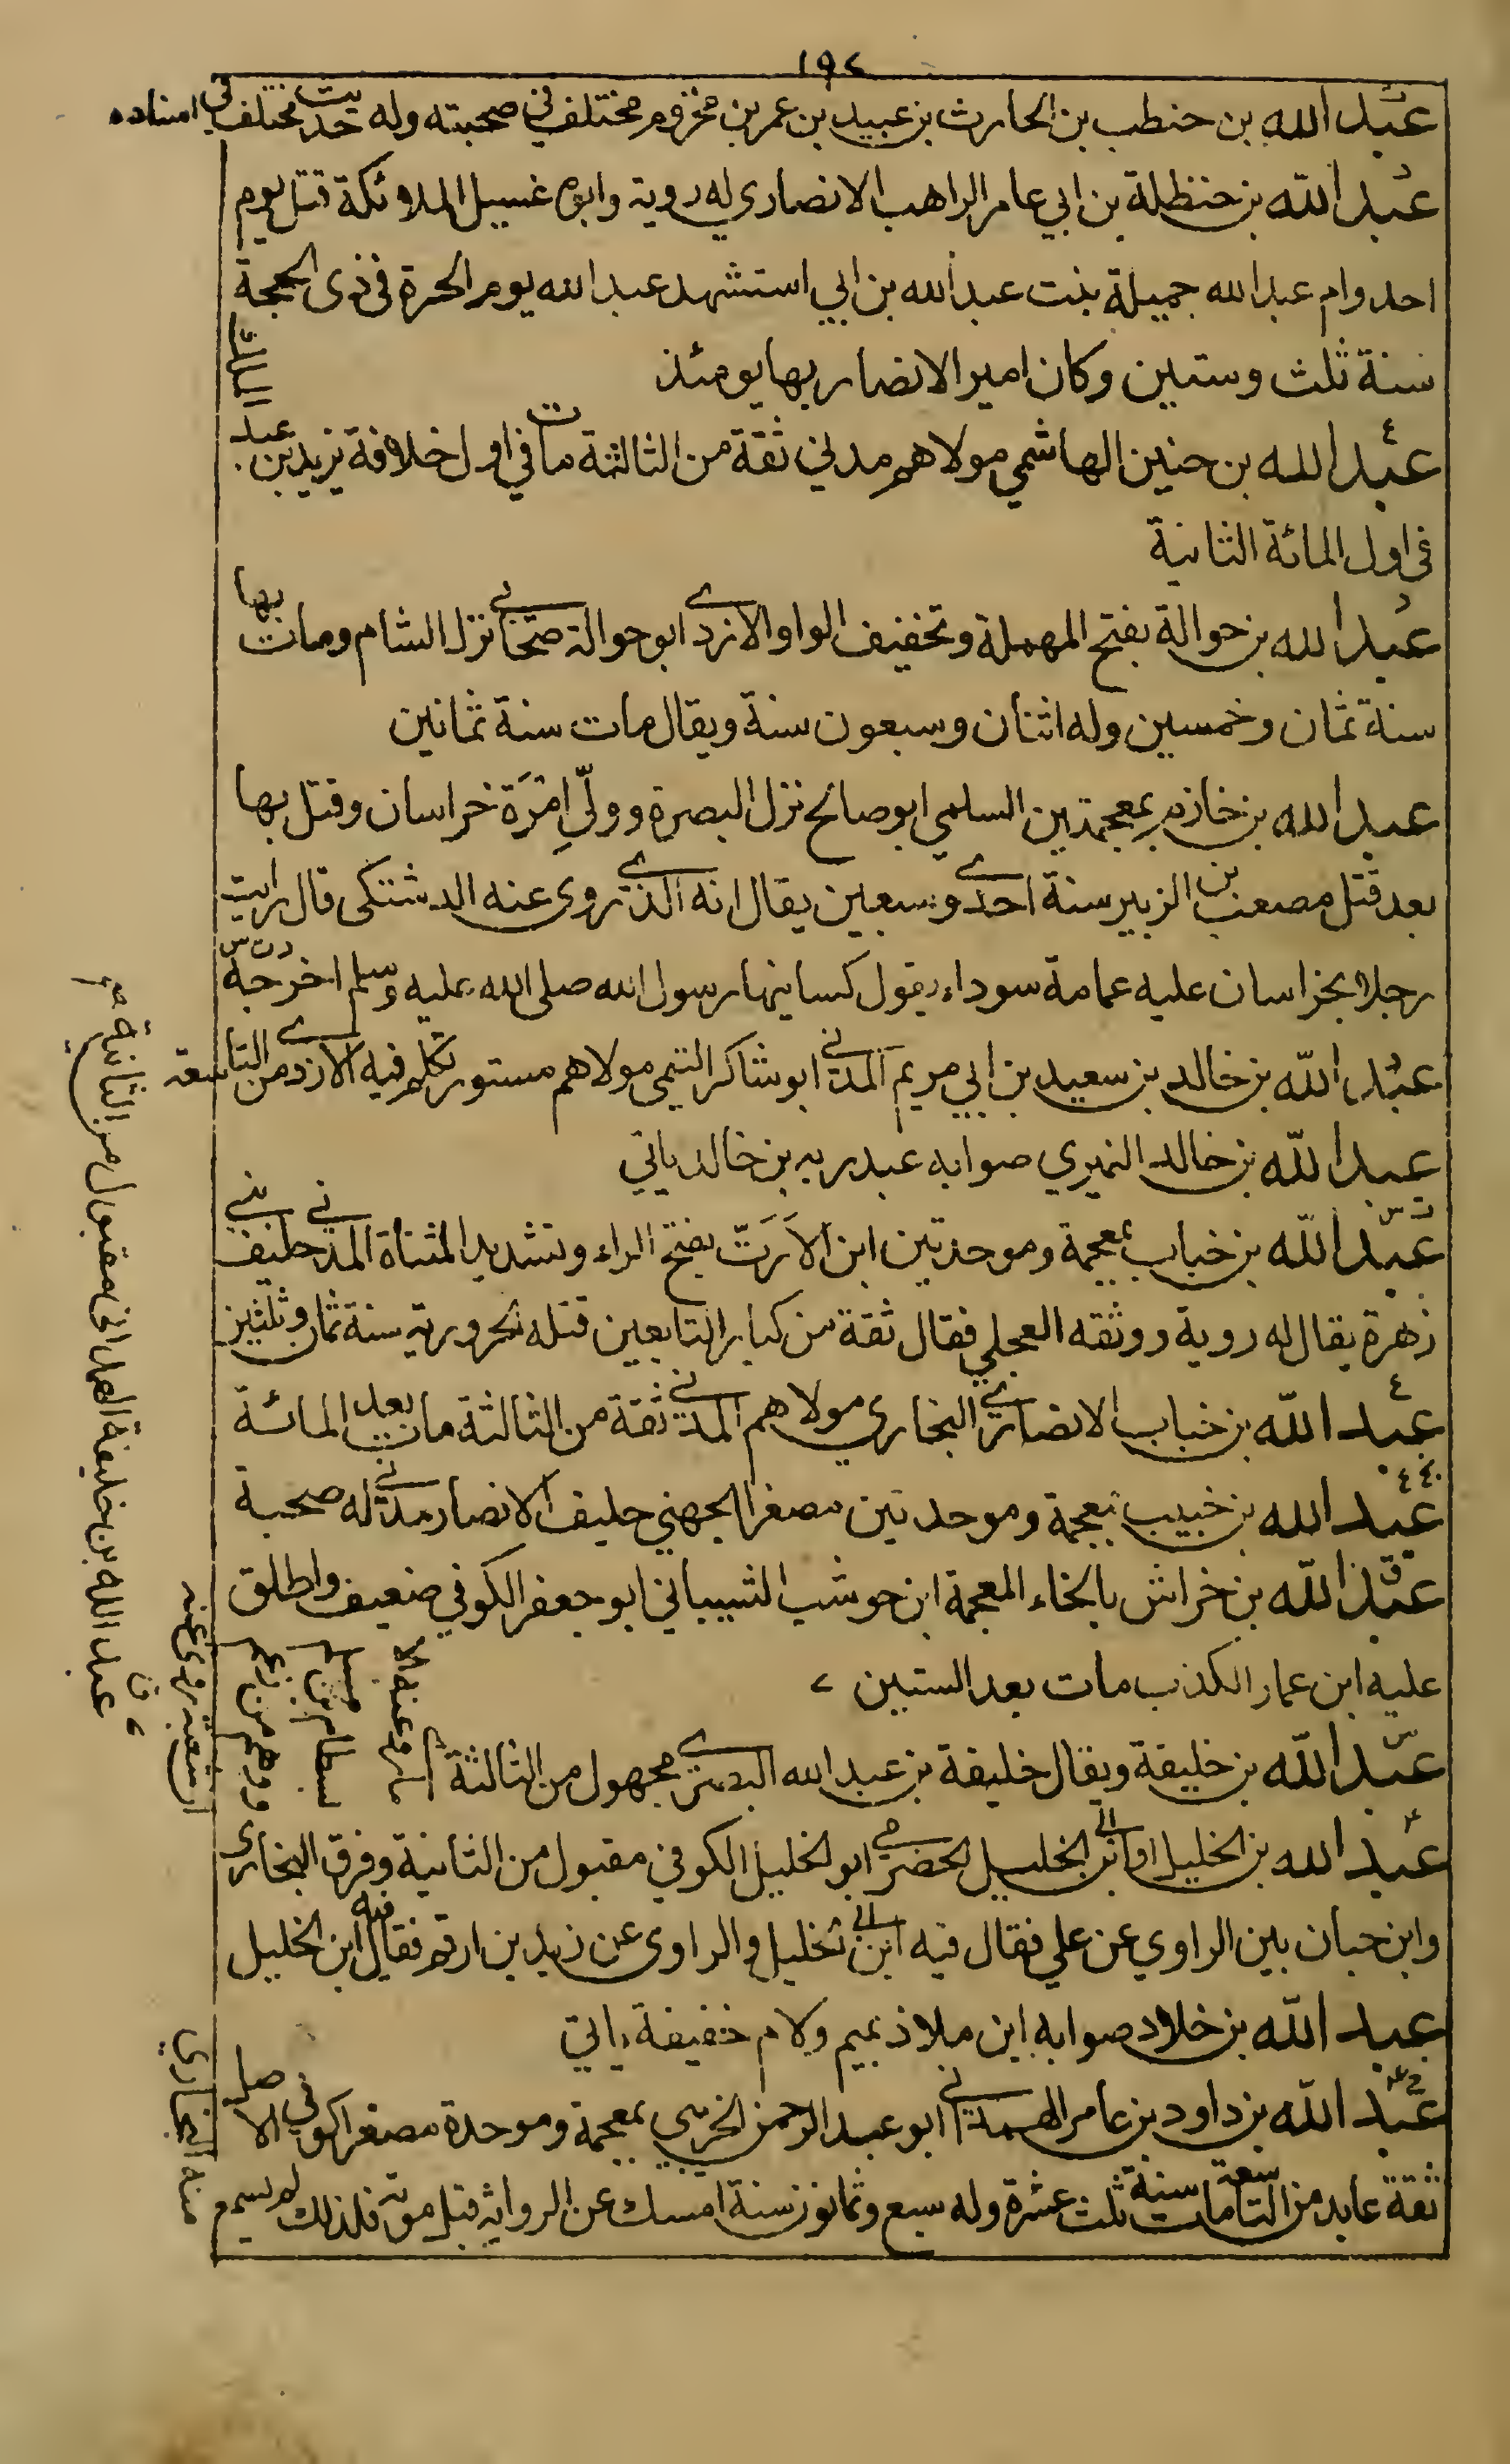 ١٩٤
عبد الله بن حنطب بن الحارث بن عبيد بن عمر بن مخزوم مختلف في صحبته وله حديث مختلف في اسناده
عبد الله بن حنظلة بن ابي عامر الراهب الانصاري له روية وابوه غسيل الملائكة قتل يوم
احد وام عبد الله جميلة بنت عبد الله بن ابي استشهد عبد الله يوم الحرة في ذى الحجة
سنة ثلث وستين وكان امير الانصار بها يومئذ
عبد الله بن حنين الهاشمي مولاهم مدني ثقة من الثالثة مات في اول خلافة يزيد بن عبد الملك
في اول المائة الثانية
عبد الله بن حوالة بفتح المهملة وتخفيف الواو الازدي ابو حوالة صحابي نزل الشام ومات بها
سنة ثمان وخمسين وله اثنان وسبعون سنة ويقال مات سنة ثمانين
عبد الله بن خازم بمعجمتين السلمي ابو صالح نزل البصرة وولّي اِمْرَة خراسان وقتل بها
بعد قتل مصعب بن الزبير سنة احدى وسبعين يقال انه الذي روى عنه الدشتكى قال رايت
رجلا بخراسان عليه عمامة سوداء يقول كسانيها رسول الله صلى الله عليه وسلم اخرجه د ت س
عبد الله بن خالد بن سعيد بن ابي مريم المدني ابو شاكر التيمي مولاهم مستور تكلم فيه الازدي من التاسعة
عبد الله بن خالد النميري صوابه عبد ربه بن خالد ياتي
عبد الله بن خباب بمعجمة وموحدتين ابن الاَرَتّ بفتح الراء وتشديد المثناة المدني حليف بني
زهرة يقال له روية ووثقه العجلي فقال ثقة من كبار التابعين قتله الحرورية سنة ثمان وثلثين
عبد الله بن خباب الانصاري النجاري مولاهم المدني ثقة من الثالثة مات بعد المائة
عبد الله بن خبيب بمعجمة وموحدتين مصغرا الجهني حليف الانصار مدني له صحبة
عبد الله بن خراش بالخاء المعجمة ابن حوشب الشيباني ابو جعفر الكوفي ضعيف واطلق
عليه ابن عمار الكذب مات بعد الستين
عبد الله بن خليفة ويقال خليفة بن عبد الله البصري مجهول من الثالثة لم يرو عنه الا
بسطام بن مسلم
ووهم من زعم
ان شعبة روى عنه
ق عبد الله بن خليفة الهمداني مقبول من الثانية
عبد الله بن الخليل او ابن ابي الخليل الحضرمي ابو الخليل الكوفي مقبول من الثانية وفرق البخاري
وابن حبان بين الراوي عن علي فقال فيه ابن ابي الخليل والراوى عن زيد بن ارقم فقال فيه ابن الخليل
عبد الله بن خلاد صوابه ابن ملاذ بميم ولام خفيفة ياتي
عبد الله بن داود بن عامر الهمداني ابو عبد الرحمن الخريبي بمعجمة وموحدة مصغرا كوفي الاصل
ثقة عابد من التاسعة مات سنة ثلث عشرة وله سبع وثمانون سنة امسك عن الرواية قبل موته فلذلك لم يسمع
منه البخاري